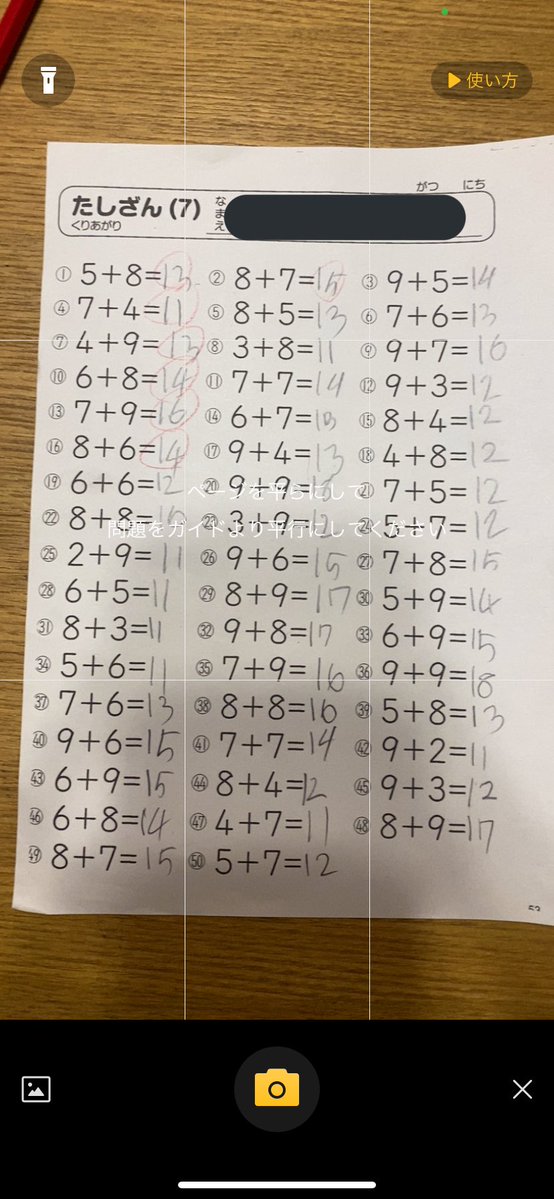 使い方
がつ にち
たしざん(7) なまえ
くりあがり
① 5+8=13 ② 8+7=15 ③ 9+5=14
④ 7+4=11 ⑤ 8+5=13 ⑥ 7+6=13
⑦ 4+9=13 ⑧ 3+8=11 ⑨ 9+7=16
⑩ 6+8=14 ⑪ 7+7=14 ⑫ 9+3=12
⑬ 7+9=16 ⑭ 6+7=13 ⑮ 8+4=12
⑯ 8+6=14 ⑰ 9+4=13 ⑱ 4+8=12
⑲ 6+6=12 ⑳ 9+9= ㉑ 7+5=12
ページを平らにして
㉒ 8+8=16 ㉓ 3+9=12 ㉔ 5+7=12
問題をガイドより平行にしてください
㉕ 2+9=11 ㉖ 9+6=15 ㉗ 7+8=15
㉘ 6+5=11 ㉙ 8+9=17 ㉚ 5+9=14
㉛ 8+3=11 ㉜ 9+8=17 ㉝ 6+9=15
㉞ 5+6=11 ㉟ 7+9=16 ㊱ 9+9=18
㊲ 7+6=13 ㊳ 8+8=16 ㊴ 5+8=13
㊵ 9+6=15 ㊶ 7+7=14 ㊷ 9+2=11
㊸ 6+9=15 ㊹ 8+4=12 ㊺ 9+3=12
㊻ 6+8=14 ㊼ 4+7=11 ㊽ 8+9=17
㊾ 8+7=15 ㊿ 5+7=12